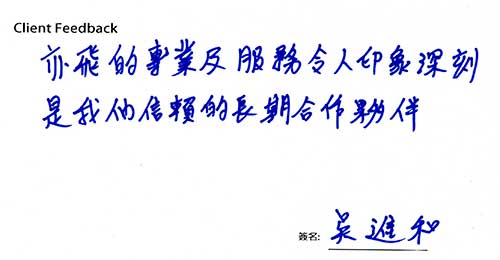 Client Feedback
亦飛的專業及服務令人印象深刻
是我们信賴的長期合作夥伴
簽名: 吴進和